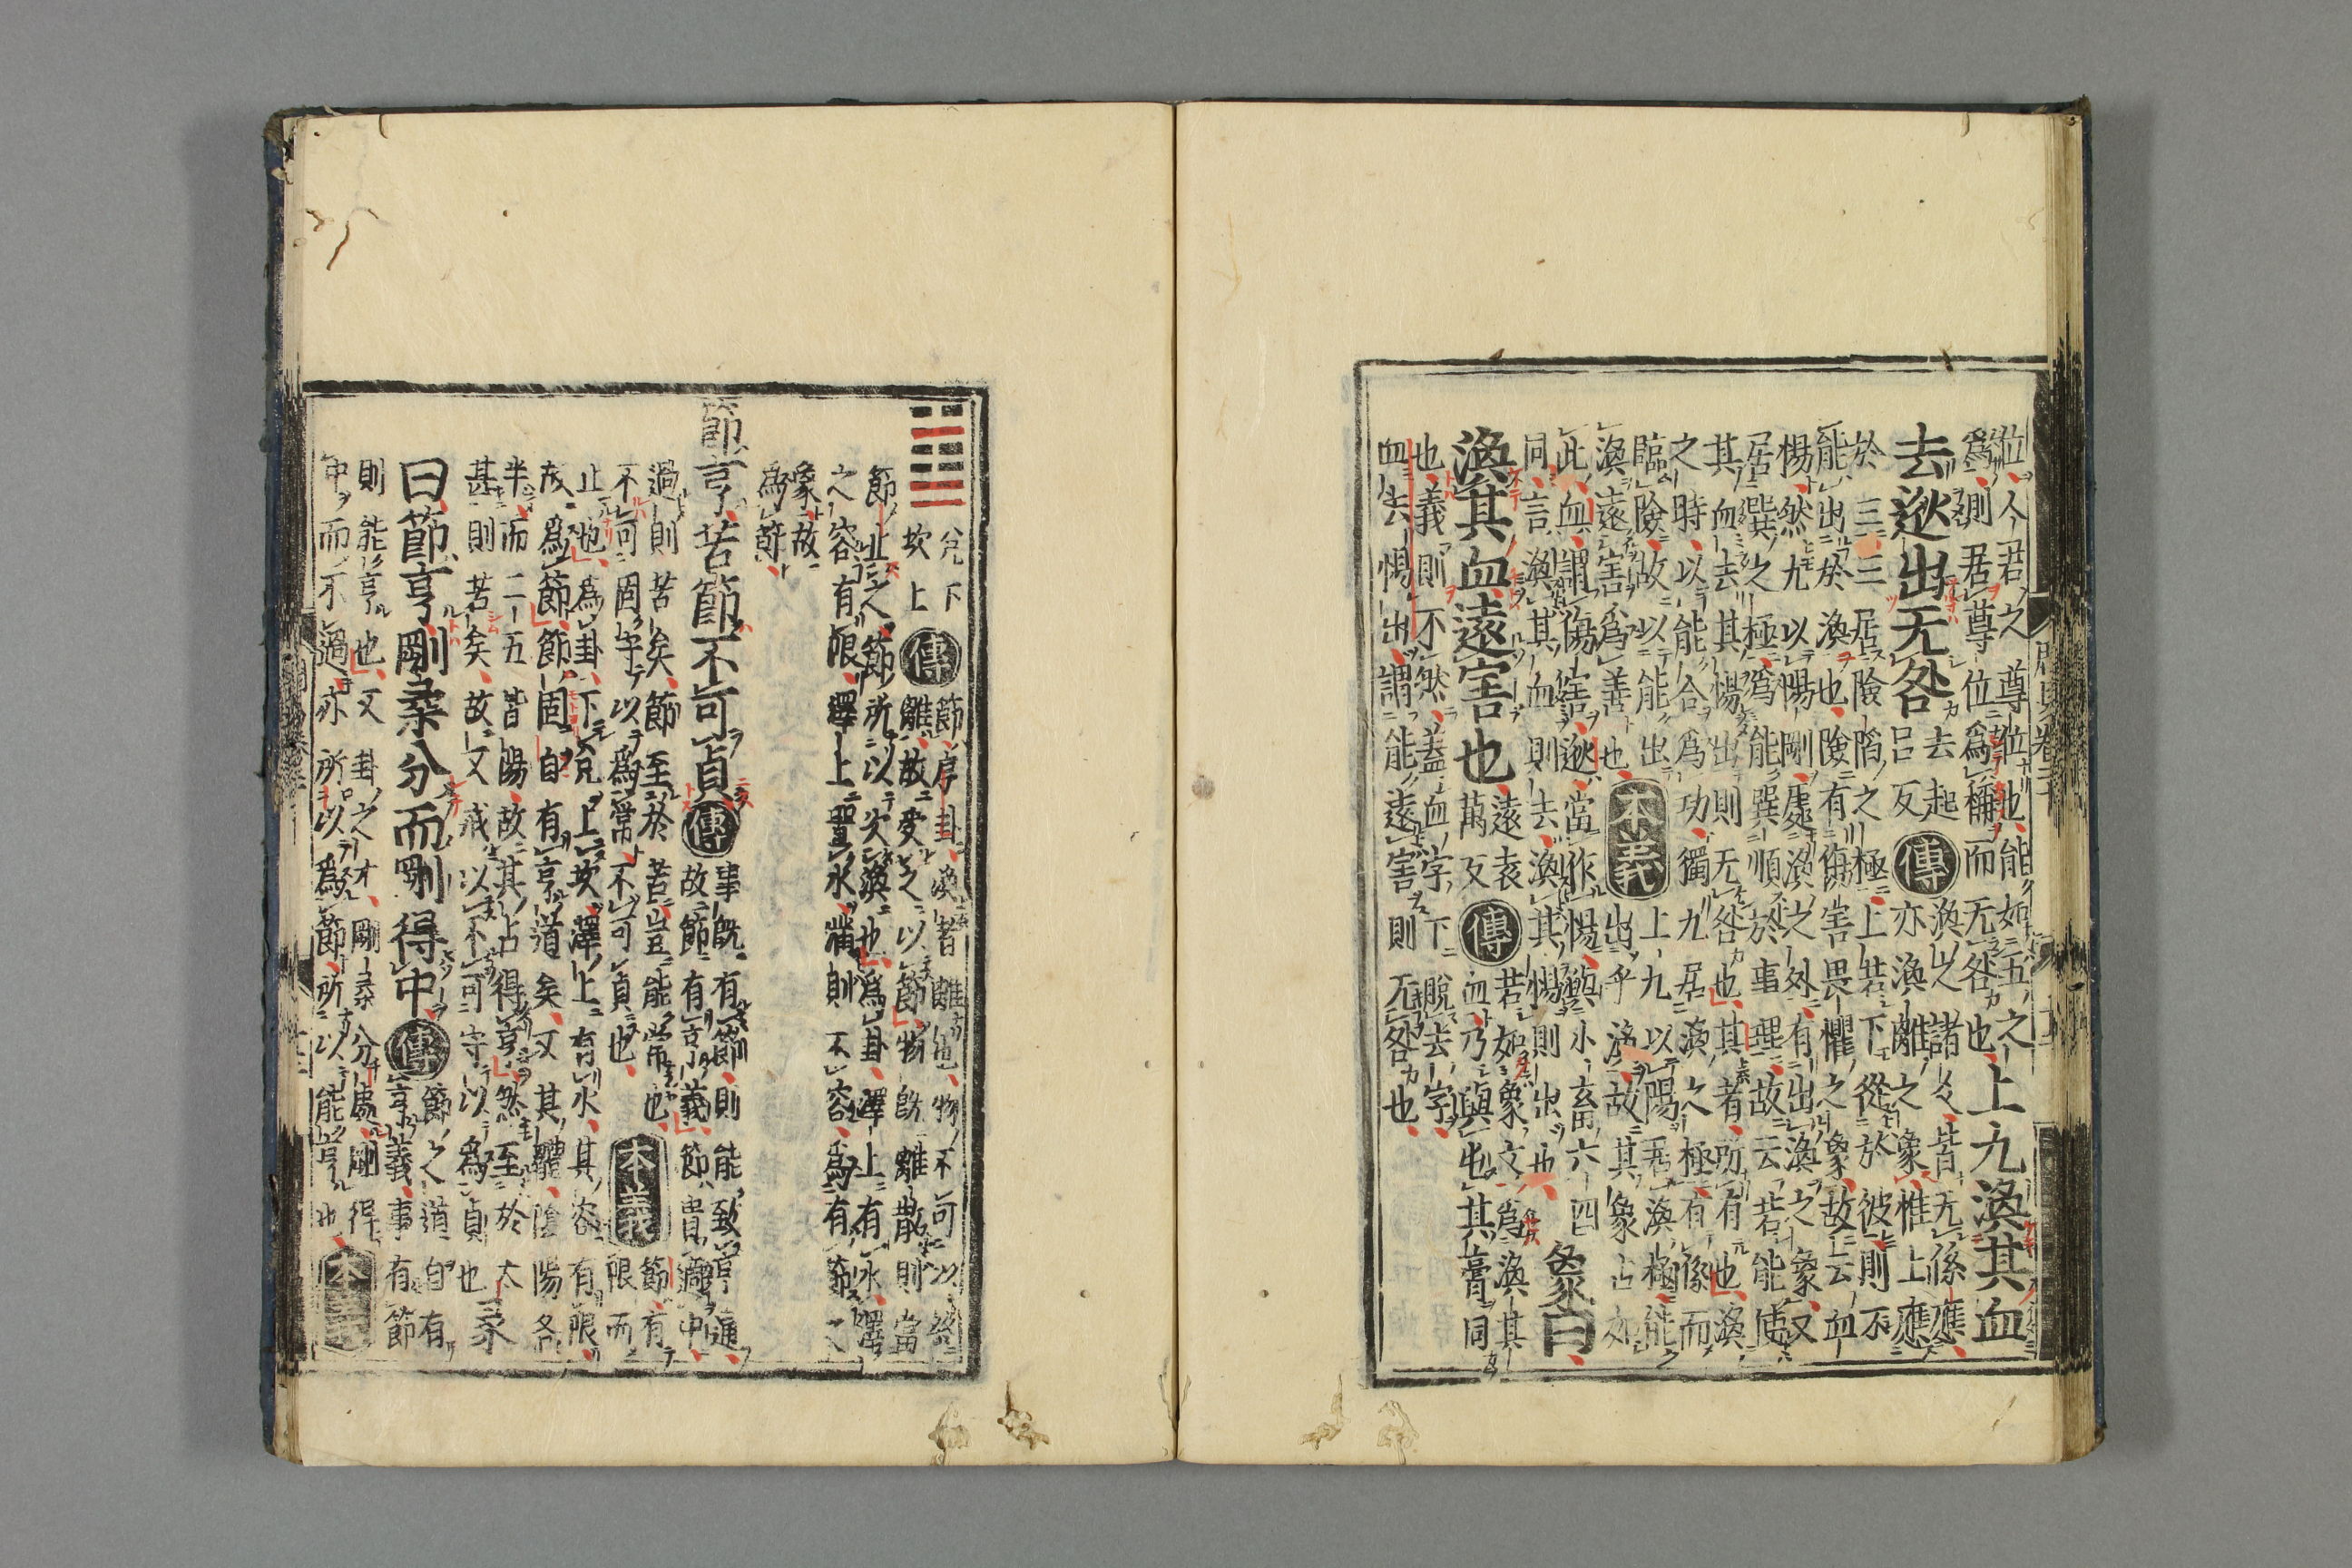 位、人君之尊位也、能如五之
爲、則君尊位爲稱而无咎也、上九渙其血
去逖出无咎 去起呂反 傳 渙之諸爻皆无係應、
亦渙離之象、惟上應
於三、三居險陷之極上若下從於彼則不
能出於渙也、險有傷害畏懼之象、故云血
惕、然九以陽剛處渙之外、有出渙之象、又
居巽之極、爲能巽順於事理、故云若能使
其血去其惕出則无咎也、其者、所有也、渙
之時、以能合爲功、獨九居渙之極有係而
臨險、故以能出
渙遠害爲善也、本義 上九以陽居渙極、能
出乎渙、故其象占如
此、血、謂傷害、逖、當作惕、與小畜六四
同、言渙其血則去、渙其惕則出也、象曰、
渙其血遠害也、遠袁萬反 傳 若如象文、爲渙其
血、乃與屯其膏同
也、義則不然、蓋血字下脫去字、
血去惕出、謂能遠害則无咎也、
兌下
坎上 傳 節、序卦、渙者離也、物不可以終
離、故受之以節、物旣離散則當
節止之、節所以次渙也、爲卦、澤上有水、澤
之容有限、澤上置水、滿則不容、爲有節之
象、故
爲節、
節亨、苦節不可貞 傳 事旣有節、則能致亨通、
故節有亨義、節貴適中、
過則苦矣、節至於苦、豈能常也、
不可固守以爲常、不可貞也、本義 節、有
限而
止也、爲卦、下兌上坎、澤上有水、其容有限、
故爲節、節固自有亨道矣、又其體陰陽各
半、而二五皆陽、故其占得亨、然至於太
甚則苦矣、故又戒以不可守以爲貞也 彖
曰、節亨、剛柔分而剛得中、傳 節之道自有
亨義、事有節
則能亨也、又卦之才、剛柔分處、剛得
中而不過、亦所以爲節、所以能亨也、本義